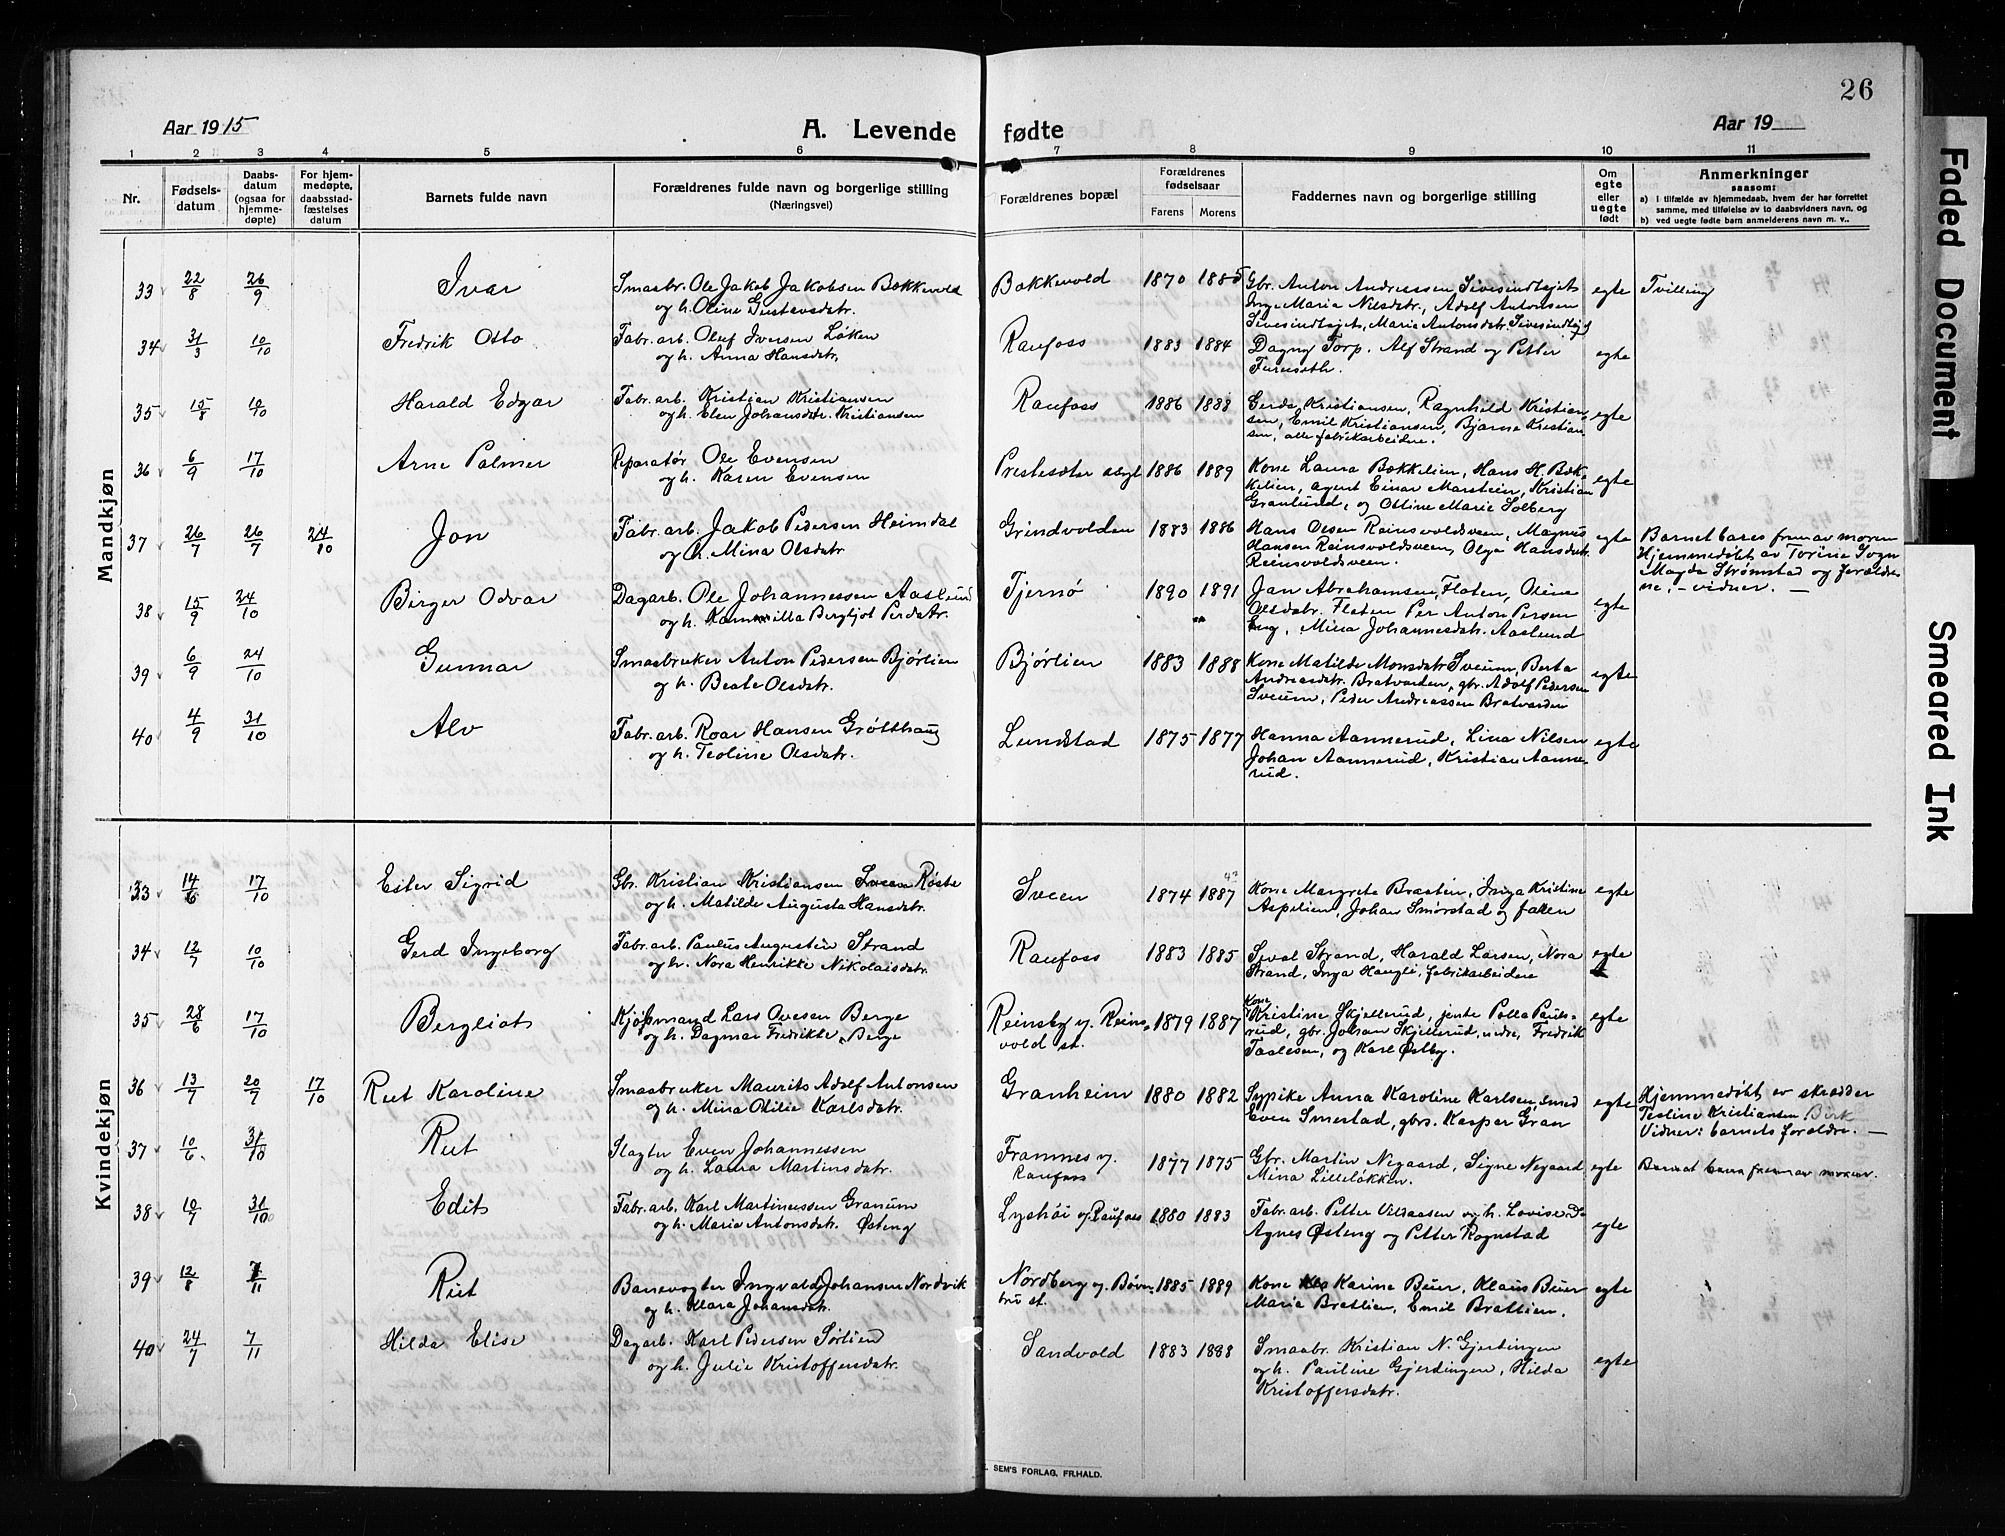 26
Aar 1915
A. Levende fødte
Aar 19
1 2 3 4 5 6 7 8 9 10 11
Nr.
Fødsels-
datum
Daabs-
datum
(ogsaa for
hjemme-
døpte)
For hjem-
medøpte,
daabsstad-
fæstelses
datum
Barnets fulde navn
Forældrenes fulde navn og borgerlige stilling
(Næringsvei)
Forældrenes bopæl
Forældrenes
fødselsaar
Farens Morens
Faddernes navn og borgerlige stilling
Om
egte
eller
uegte
født
Anmerkninger
saasom:
a) i tilfælde av hjemmedaab, hvem der har forrettet
samme, med tilføielse av to daabsvidners navn, og
b) ved uegte fødte barn anmelderens navn m. v..
Mandkjøn
33 22/8 26/9 Ivar
Smaabr. Ole Jakob Jakobsen Bakkevold
og h. Oline Gustavsdtr.
Bakkevold 1870 1885
Gbr. Anton Andreassen Sivesindtajet
Inge Maria Nilsdatr, Adolf Antonsen
Sivesindtajet, Marie Antonsdtr. Sivesindtajet
egte Tvilling
34 31/3 10/10 Fredrik Otto
Fabr. arb. Oluf Iversen Løken
og h. Anna Hansdtr,
Raufoss 1883 1884
Dagny Torp. Alf Strand og Petter
Furuseth.
egte
35 15/8 10/10 Harald Edgar
Fabr. arb. Kristian Kristiansen
og h. Elen Johansdtr. Kristiansen
Raufoss 1886 1888
Gerda Kristiansen, Ragnhild Kristian
sen, Emil Kristiansen, Bjarne Kristian
sen, alle fabrikarbeidere.
egte
36 6/9 17/10 Arne Palmer
Reparatør Ole Evensen
og h. Karen Evensen
Prestesæter asyl 1886 1889
Kone Laura Bækkelien, Hans H. Bæk-
kelien, agent Einar Marstein, Kristian
Granlund, og Otline Marie Solberg
egte
37 26/7 26/7 24/10 Jon
Fabr. arb. Jakob Pedersen Heimdal
og h. Mina Olsdatr
Grindvolden 1883 1886
Hans Olsen Reinsvoldsveen, Magnus
Hansen Reinsvoldsveen, Olga Hansdtr.
Reinsvoldsveen.
egte
Barnet bares frem av moren
Hjemmedøbt av Torine Sogn
Magda Strømstad og foræld
ne, - vidner. —
38 15/9 24/10 Birger Odvar
Dagarb. Ole Johannessen Aaslund
og h. Kammilla Bergljot Perdatr.
Tjernø 1890 1891
Jan Abrahamsen, Flaten, Oline
Olsdatr. Flaten Per Anton Persen
Eng, Mina Johannesdatr. Aaslund
egte
39 6/9 24/10 Gunnar
Smaabruker Anton Pedersen Bjørlien
og h. Beate Olsdatr.
Bjørlien 1883 1888
Kone Matilde Monsdatr Sveum, Berta
Andreasdatr. Bratvarden, gbr. Adolf Pedersen
Sveum, Peder Andreassen Bratvarden
egte
40 4/9 31/10 Alv
Fabr. arb. Roar Hansen Grøtthaug
og h. Teoline Olsdatr.
Lundstad 1875 1877
Hanna Aannerud, Lina Nilsen
Johan Aannerud, Kristian Aanne-
rud.
egte
Kvindekjøn
33 14/6 17/10 Ester Sigrid
Gbr. Kristian Kristiansen Sveen Røste
og h. Matilde Augusta Hansdatr.
Sveen 1874 1887
Kone Margrete Braaten, Inga Kristine
Aspelien, Johan Smørstad og faren
egte
34 12/7 10/10 Gerd Ingeborg
Fabr. arb. Paulus Augustin Strand
og h. Nora Henrikke Nikolaisdatr.
Raufoss 1883 1885
Sival Strand, Harald Larsen, Nora
Strand, Inga Haugli, fabrikarbeidere
egte
35 28/6 17/10 Bergliot
Kjøpmand Lars Ovesen Berge
og h. Dagmar Fredrikke, Berge
Reinsby v. Reins
vold st.
1879 1887
Kone
Kristine Skjellerud, jente Polla Pauls-
rud, gbr. Johan Skjellerud, nedre, Fredrik
Taalesen, og Karl Østby.
egte
36 13/7 20/7 17/10 Rut Karoline
Smaabruker Maurits Adolf Antonsen
og h. Mina Otilie Karlsdatr.
Granheim 1880 1882
Sypike Anna Karoline Karlsen, smed
Even Smestad, gbrs. Kasper Gran
egte
Hjemmedøbt av skrædder
Teoline Kristiansen Birk
Vidner: barnets forældre. —
37 10/6 31/10 Rut
Slagter Even Johannessen
og h. Laura Martinsdatr.
Framnes v.
Raufoss
1877 1875
Gbr. Martin Negaard, Signe Negaard
Mina Lilleløkken.
egte
Barnet bares frem av moren.
38 10/7 31/10 Edit
Fabr. arb. Karl Martinussen Granum
og h. Maria Antonsdatr. Østeng
Lyshøi v. Raufoss 1880 1883
Fabr. arb. Petter Vilsaasen og h. Lovise Do
Agnes Østeng og Petter Rognstad
egte
39 12/8 7/11 Rut
Banevogter Ingvald Johansen Nordvik
og h. Klara Johansdatr.
Nordberg v. Bøver-
bru st.
1885 1889
Kone Karine Beier, Klaus Beier
Maria Brattlien, Emil Brattlien.
egte
40 24/7 7/11 Hilda Elise
Dagarb. Karl Pedersen Sørlien
og h. Julie Kristoffersdatr.
Sandvold 1883 1888
Smaabr. Kristian N. Gjerdingen
og h. Pauline Gjerdingen, Hilda
Kristoffersdatr.
egte
SEM'S FORLAG, FR.HALD.
Faded Document
Smeared Ink